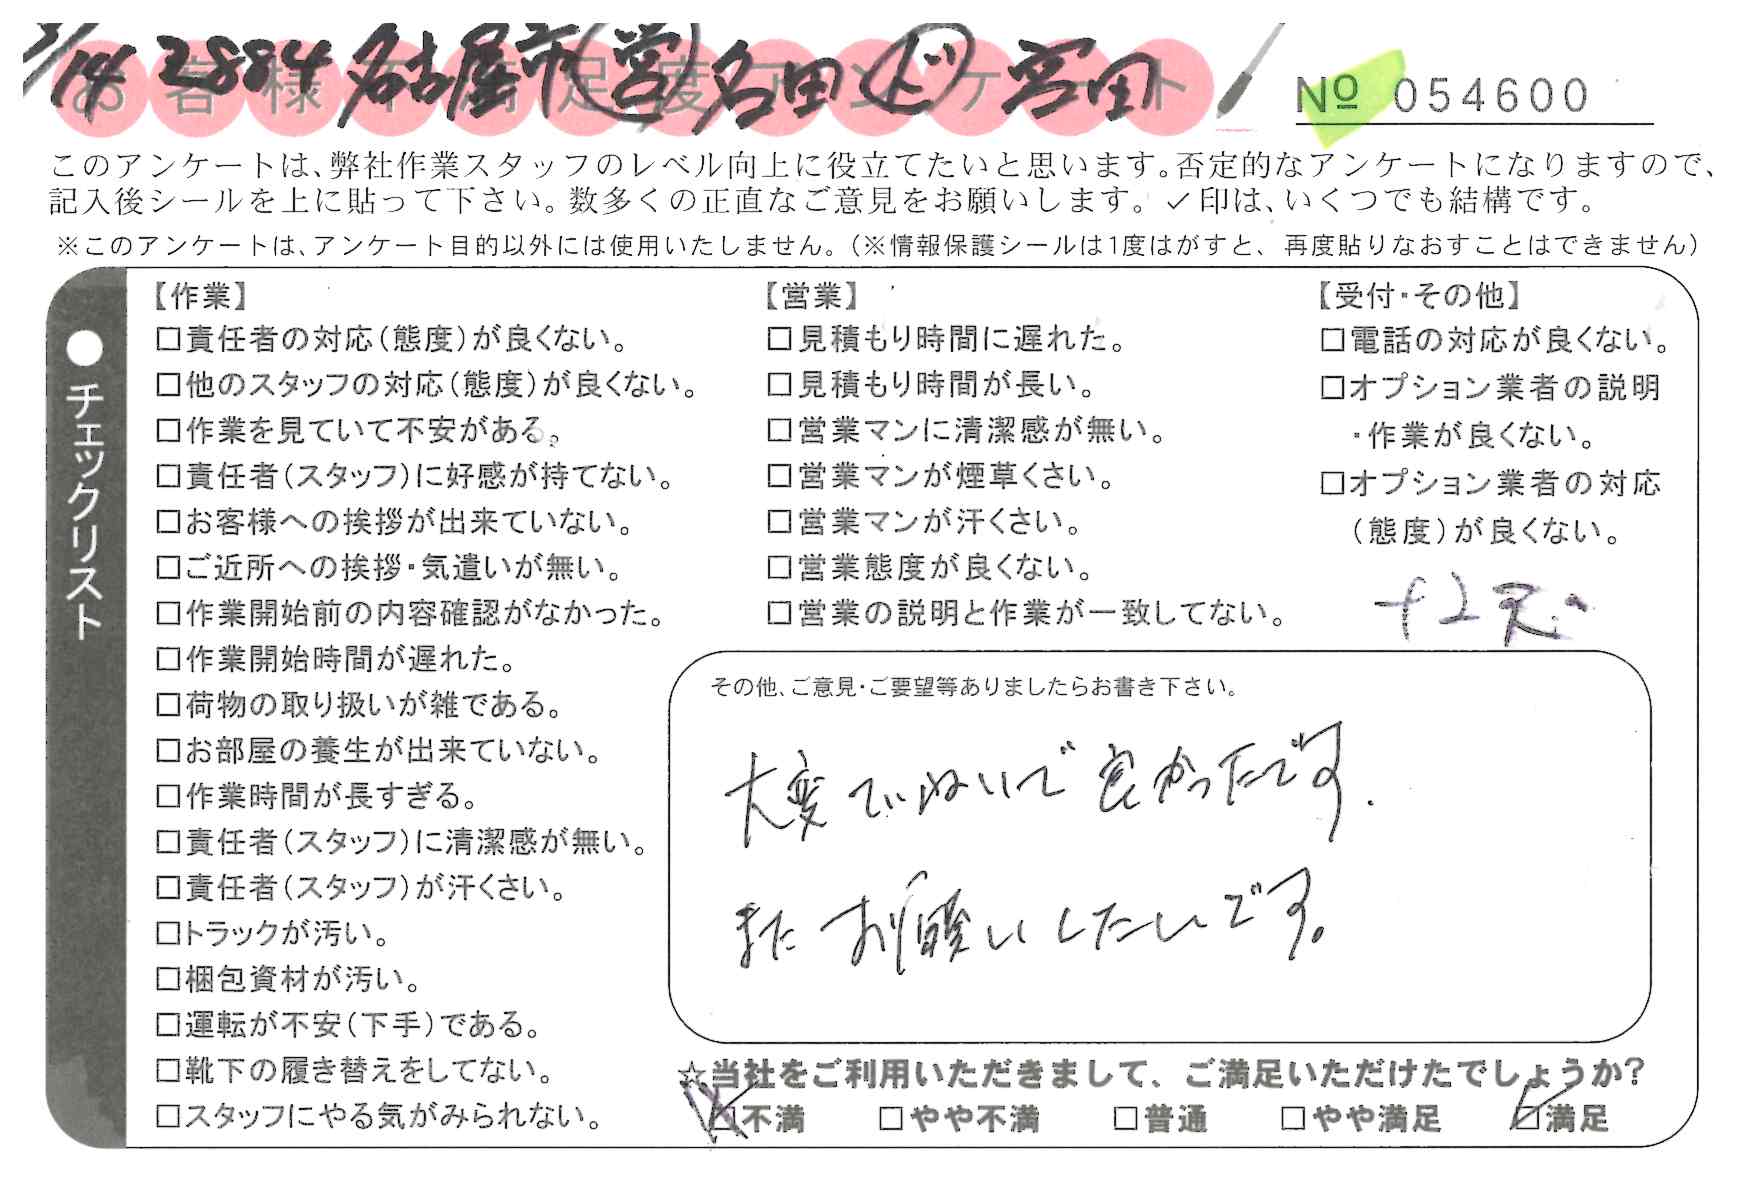 3/14 2884 名古屋市 営 名田 ド 宮田
お客様不満足度アンケート
№ 054600
このアンケートは、弊社作業スタッフのレベル向上に役立てたいと思います。否定的なアンケートになりますので、
記入後シールを上に貼って下さい。数多くの正直なご意見をお願いします。✓印は、いくつでも結構です。
※このアンケートは、アンケート目的以外には使用いたしません。（※情報保護シールは1度はがすと、再度貼りなおすことはできません）
●チェックリスト
【作業】
□責任者の対応（態度）が良くない。
□他のスタッフの対応（態度）が良くない。
□作業を見ていて不安がある。
□責任者（スタッフ）に好感が持てない。
□お客様への挨拶が出来ていない。
□ご近所への挨拶・気遣いが無い。
□作業開始前の内容確認がなかった。
□作業開始時間が遅れた。
□荷物の取り扱いが雑である。
□お部屋の養生が出来ていない。
□作業時間が長すぎる。
□責任者（スタッフ）に清潔感が無い。
□責任者（スタッフ）が汗くさい。
□トラックが汚い。
□梱包資材が汚い。
□運転が不安（下手）である。
□靴下の履き替えをしてない。
□スタッフにやる気がみられない。
【営業】
□見積もり時間に遅れた。
□見積もり時間が長い。
□営業マンに清潔感が無い。
□営業マンが煙草くさい。
□営業マンが汗くさい。
□営業態度が良くない。
□営業の説明と作業が一致してない。
【受付・その他】
□電話の対応が良くない。
□オプション業者の説明
・作業が良くない。
□オプション業者の対応
（態度）が良くない。
その他、ご意見・ご要望等ありましたらお書き下さい。
大変ていねいで良かったです.
またお願いしたいです。
☆当社をご利用いただきまして、ご満足いただけたでしょうか？
□不満 □やや不満 □普通 □やや満足 ☑満足